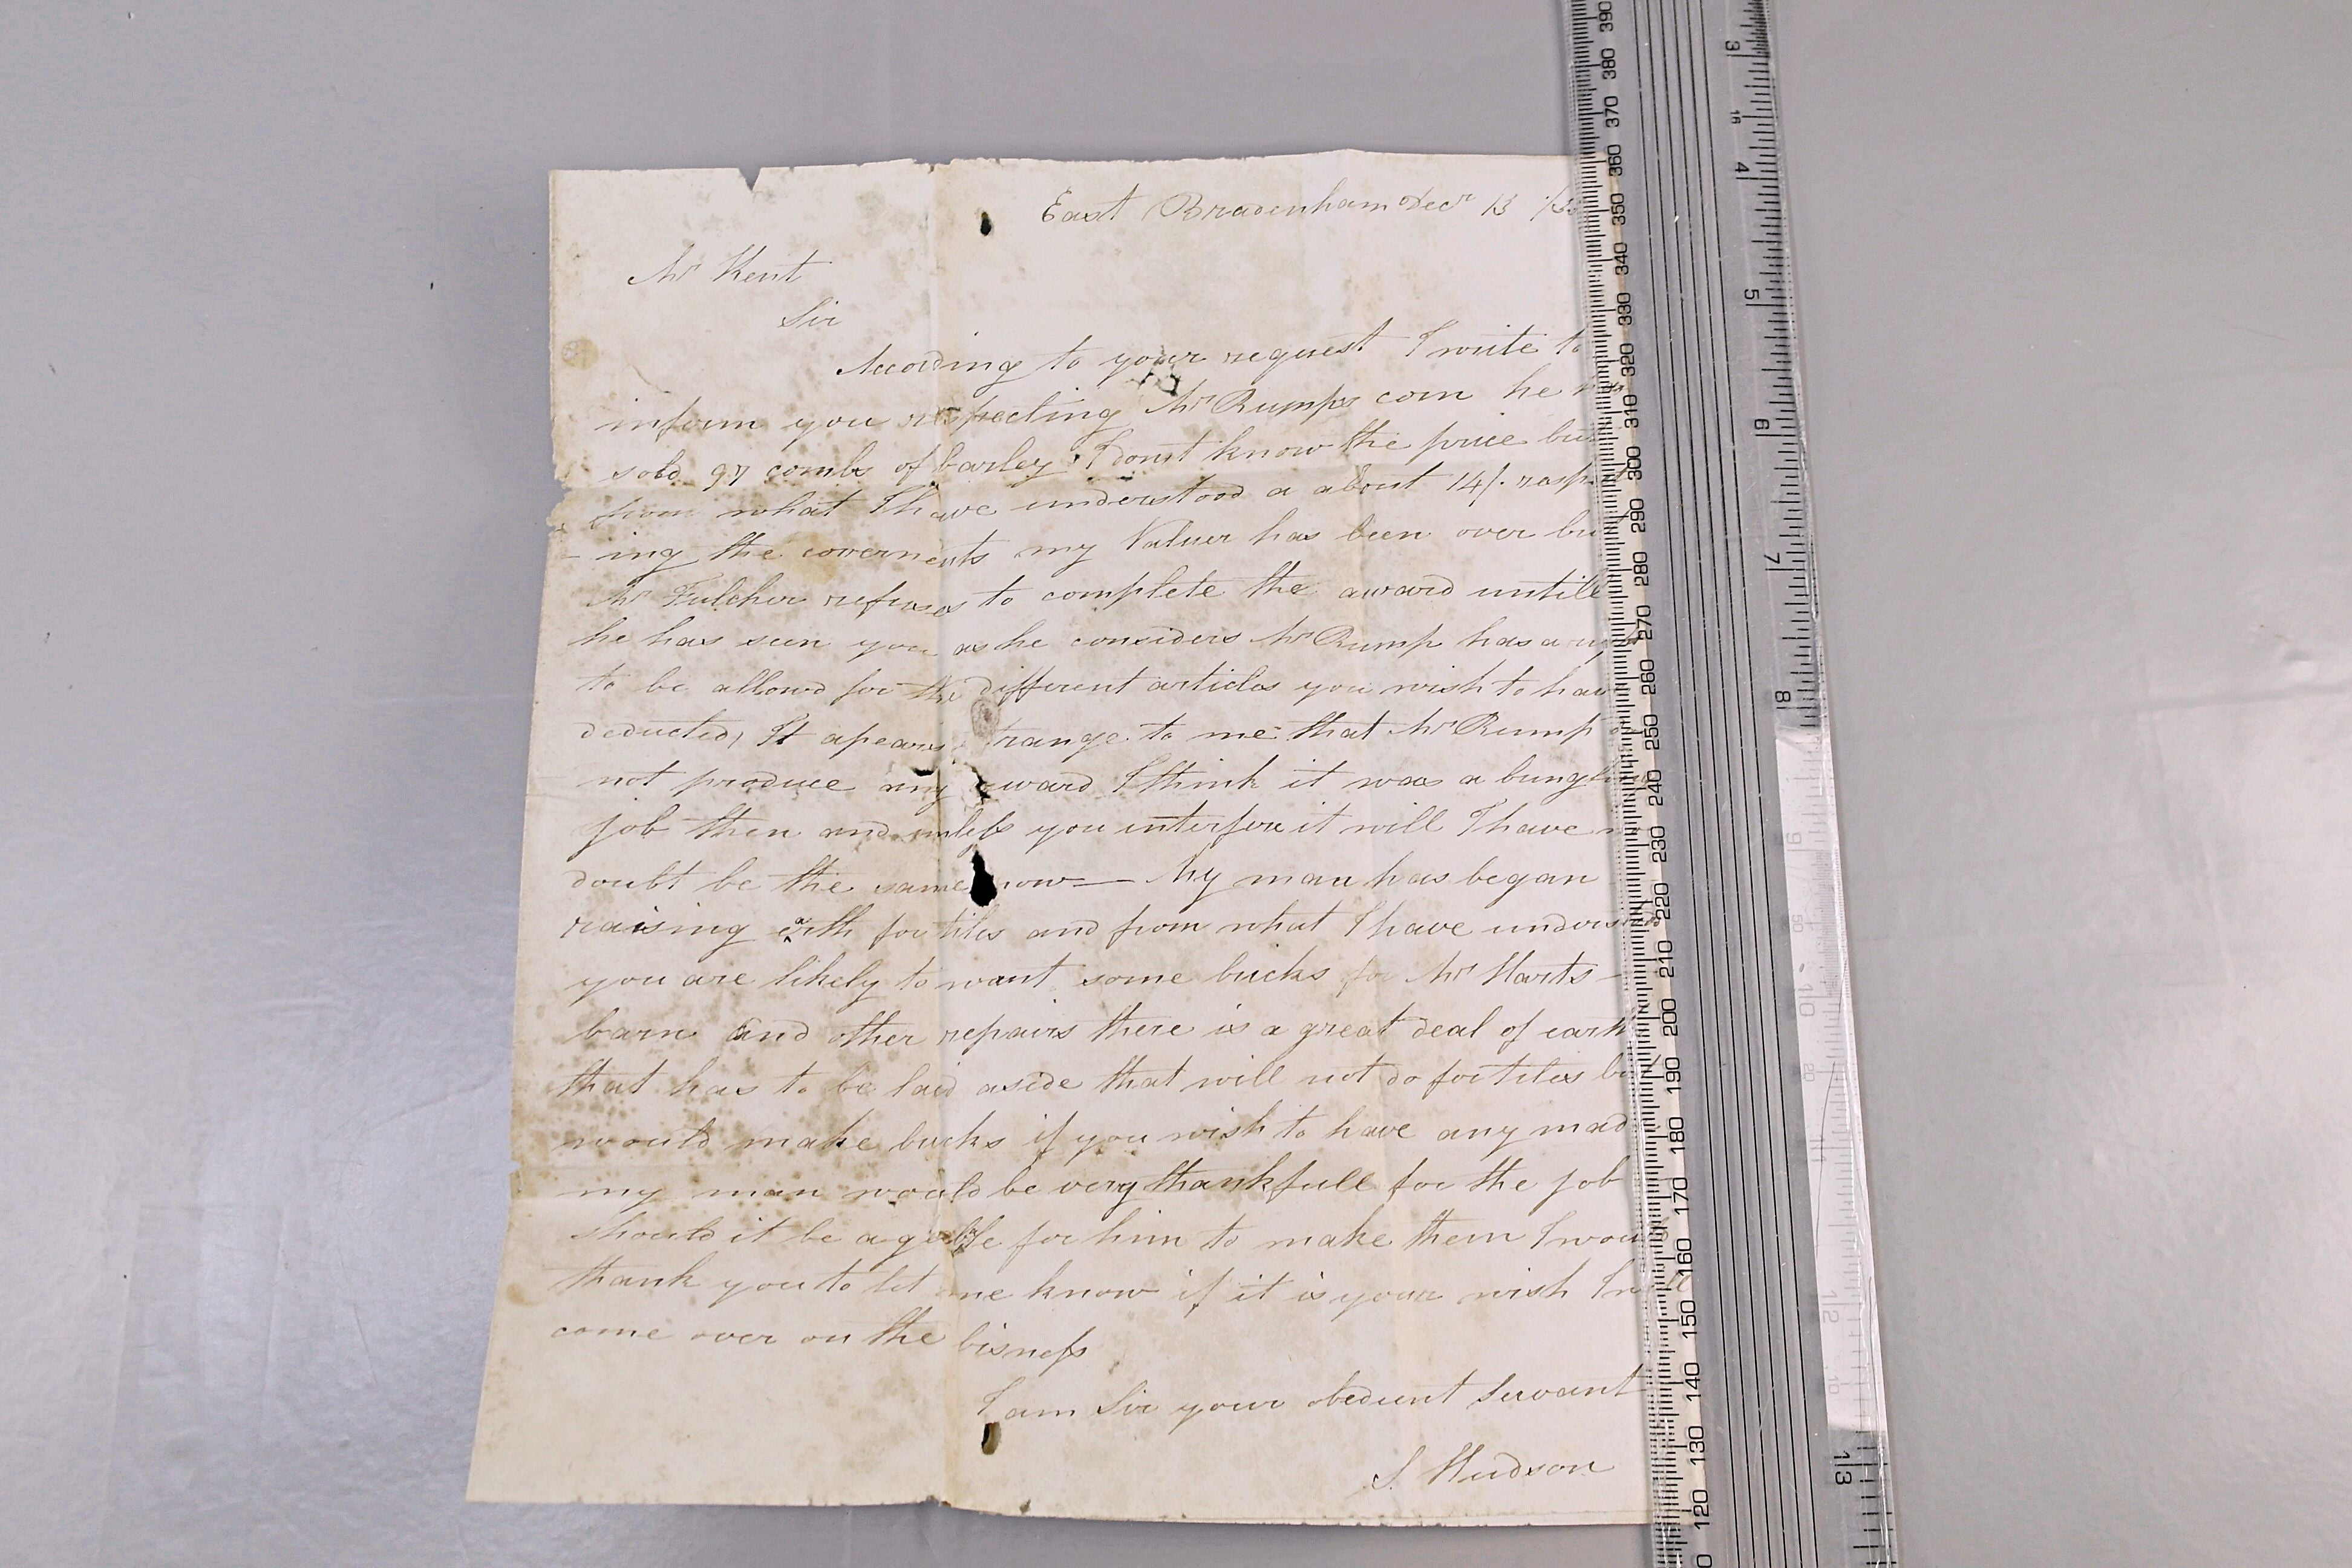 East Bradenham Decr 13
Mr Kent
Sir
According to your request I write to
inform you respecting Mr Rumps corn he
sold 97 combs of barley I don't know the price but
from what I have understood a about 14/. resp
-ing the covernents my Valuer has been over but
Mr Fulcher refuses to complete the award untill
he has seen you as he considers Mr Rump has a
to be allowd for the different articles you wish to have
deducted, It apears strange to me that Mr Rump
not produce any award I think it was a bungling
job then and unless you interfere it will I have
doubt be the same now — My man has began
raising earth for tiles and from what I have understood
you are likely to want some bricks for Mr Harts
barn and other repairs there is a great deal of earth
that has to be laid aside that will not do for tiles but
would make bricks if you wish to have any mad
my man would be very thankfull for the job
should it be agrable for him to make them I would
thank you to let me know if it is your wish I will
come over on the bisness
I am Sir your obedient Servant
S. Hudson
390 380 370 360 350 340 330 320 310 300 290 280 270 260 250 240 230 220 210 200 190 180 170 160 150 140 130 120
3 16 4 5 6 7 8 9 10 11 12 13